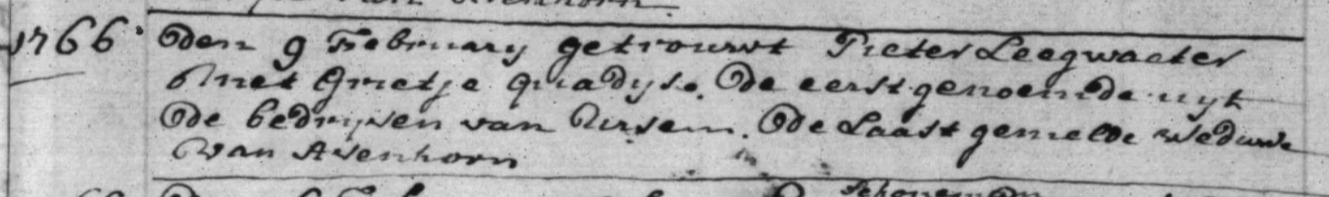 1766 Den 9 February getrouwt Pieter Leegwaeter
Met Grietje quadyse. De eerst genoemde uyt
De bedryven van Ursem. De Laast gemelde wedurde
Van Avenhorn